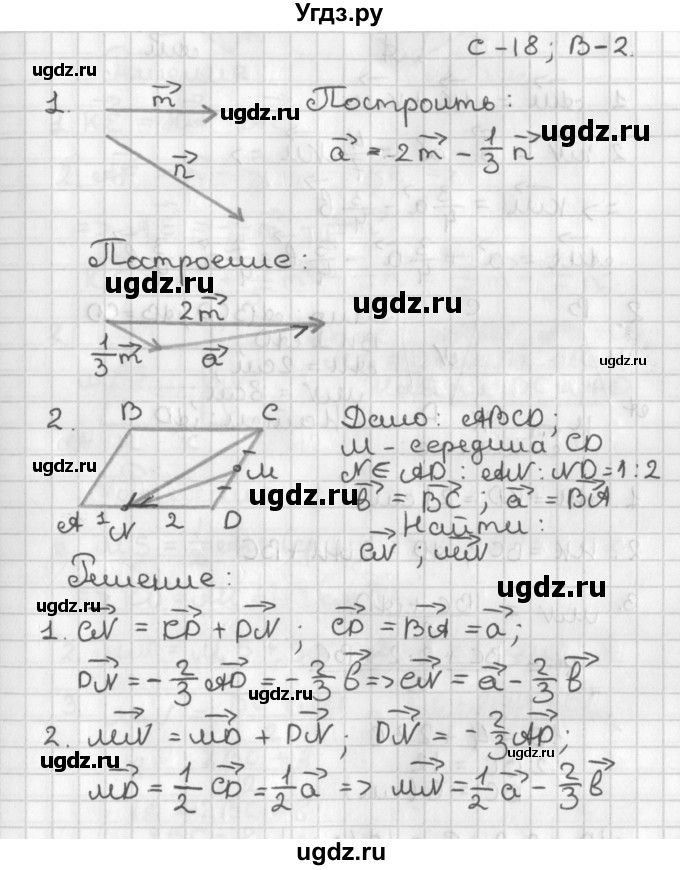 Угдз.ру
С-18; В-2.
ugdz.ru
1. m⃗ ugdz.ru Построить: ugdz.ru
n⃗
a⃗ = 2m⃗ - 1/3 n⃗
Построение:
ugdz.ru
2m⃗ ugdz.ru
1/3 m⃗ a⃗
ugdz.ru
2. B C Дано: ABCD;
M M - середина CD
ugdz.ru
N ∈ AD : AN : ND = 1 : 2
b⃗ = BC⃗ ; a⃗ = BA⃗
A 1 N 2 D Найти:
CN⃗, MN⃗
Решение: ugdz.ru
ugdz.ru
1. CN⃗ = CD⃗ + DN⃗; CD⃗ = BA⃗ = a⃗;
DN⃗ = - 2/3 AD⃗ = - 2/3 b⃗ => CN⃗ = a⃗ - 2/3 b⃗
ugdz.ru
2. MN⃗ = MD⃗ + DN⃗; DN⃗ = - 2/3 AD⃗;
ugdz.ru ugdz.ru
MD⃗ = 1/2 CD⃗ = 1/2 a⃗ => MN⃗ = 1/2 a⃗ - 2/3 b⃗
ugdz.ru